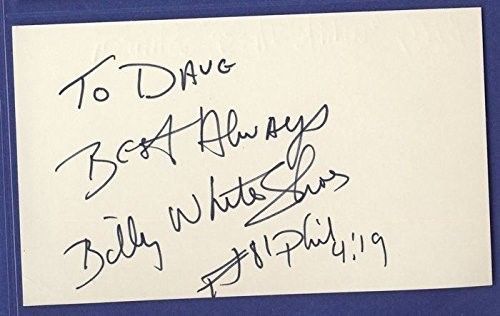 To Daug
Best Always
Billy White Shoes
Phil 4:19